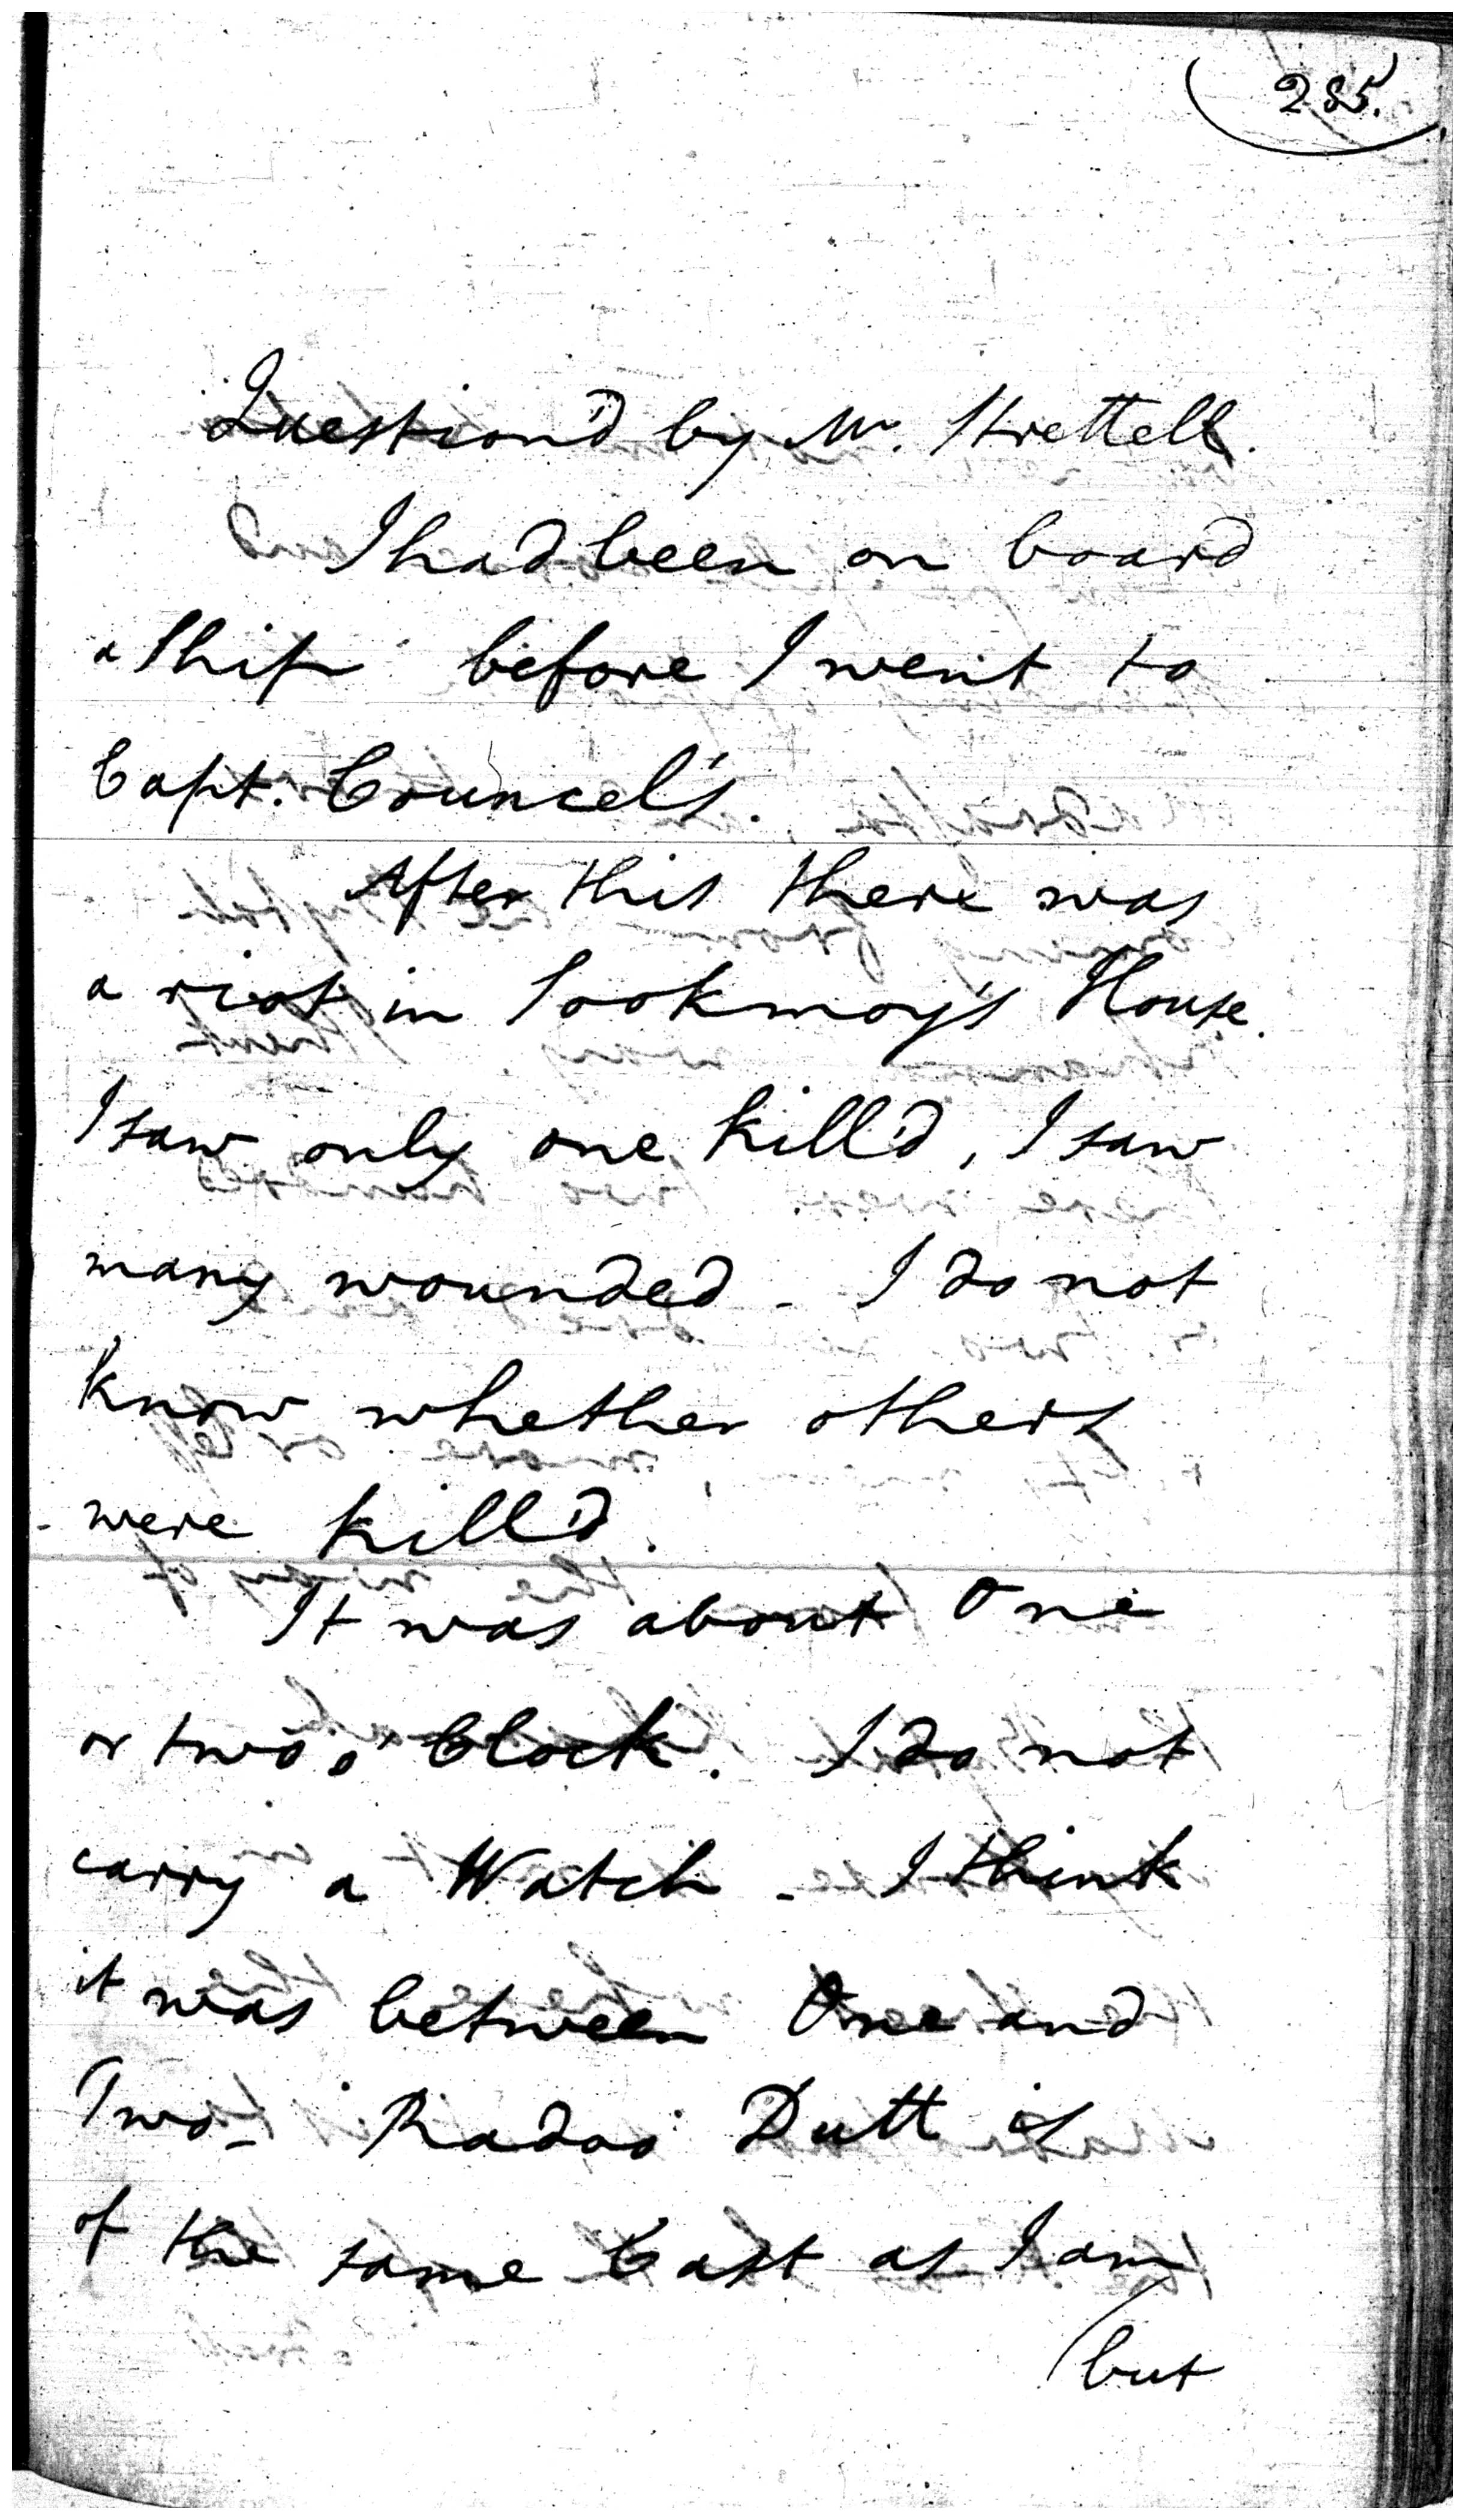 285.
Question'd by Mr. Strettell.
I had been on board
a Ship before I went to
Capt. Councel's.
After this there was
a riot in Sookmoy's House.
I saw only one kill'd, I saw
many wounded - I do not
know whether others
were kill'd.
It was about One
or two o'Clock. I do not
carry a Watch - I think
it was between One and
Two - Radoo Dutt is
of the same Cast as I am
but